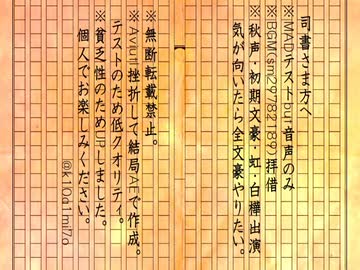 司書さま方へ
※MADテストbut音声のみ
※BGM(sm29782189)拝借
※秋声・初期文豪・虹・白樺出演
気が向いたら全文豪やりたい。
※無断転載禁止。
※Aviutl挫折して結局AEで作成。
テストのため低クオリティ。
※貧乏性のためUPしました。
個人でお楽しみください。
@k10a1mi7a